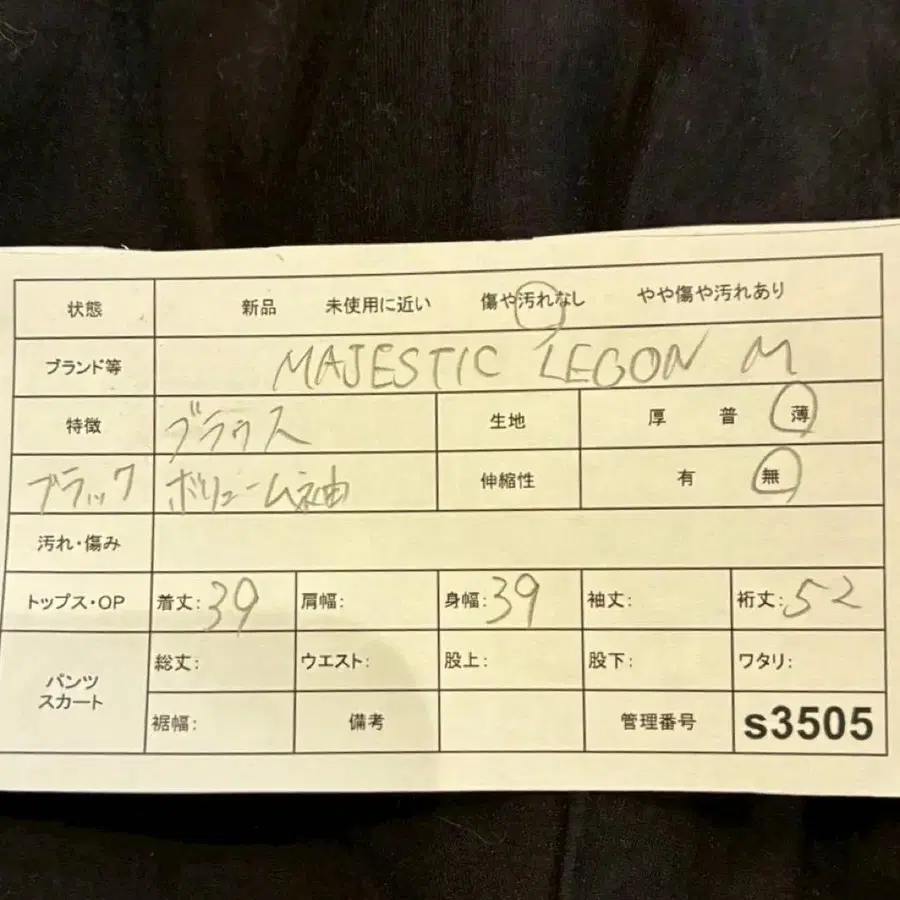 状態 新品 未使用に近い 傷や汚れなし やや傷や汚れあり
ブランド等 MAJESTIC LEGON M
特徴 ブラウス 生地 厚 普 薄
ブラック ボリューム袖 伸縮性 有 無
汚れ・傷み
トップス・OP 着丈: 39 肩幅: 身幅: 39 袖丈: 裄丈: 52
パンツ
スカート
総丈: ウエスト: 股上: 股下: ワタリ:
裾幅: 備考 管理番号 s3505